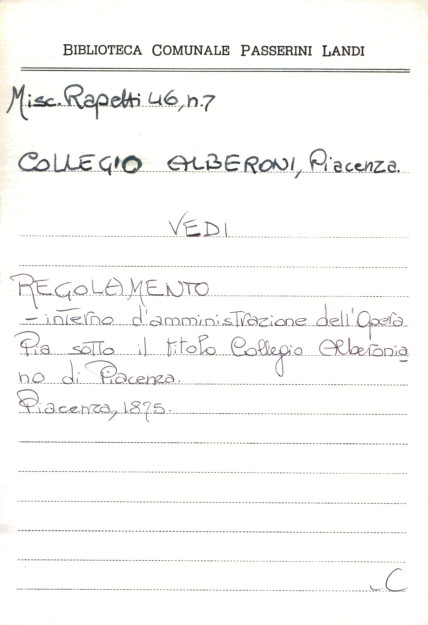 BIBLIOTECA COMUNALE PASSERINI LANDI
Misc. Rapetti 46, n. 7
COLLEGIO ALBERONI, Piacenza.
VEDI
REGOLAMENTO
- interno d'amministrazione dell'Opera
Pia sotto il titolo Collegio Alberonia
no di Piacenza.
Piacenza, 1875.
C